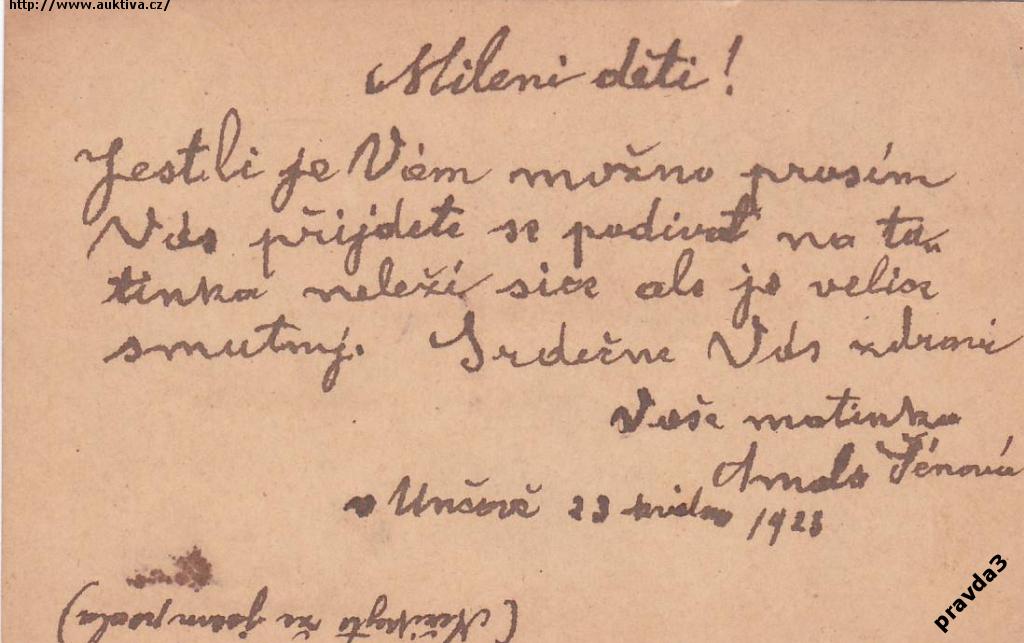 http://www.auktiva.cz/
Mileni děti!
Jestli je Vám možno prosím
Vás přijdete se podivat na ta„
tinka neleží sice ale je velice
smutný. Srdečne Vás zdraví
Vaše matinka
Amala
v Unčově 23 1923
že jsem psala)
pravda3